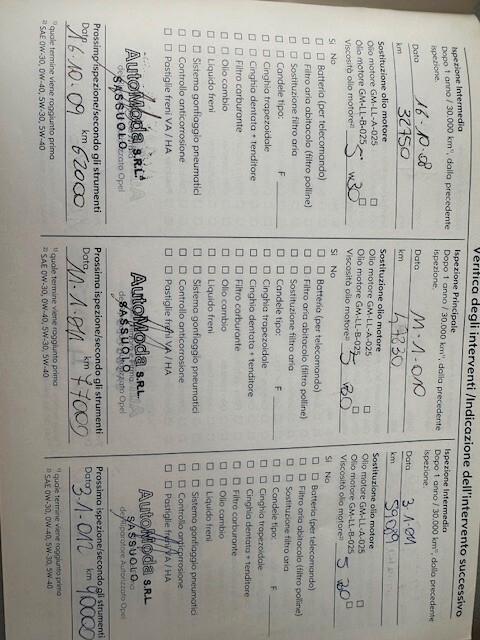 Verifica degli interventi /Indicazione dell'intervento successivo
Ispezione Intermedia
Dopo 1 anno / 30.000 km¹⁾, dalla precedente
ispezione.
Data 16-10-08
km 36750
Sostituzione olio motore
Olio motore GM-LL-A-025 □
Olio motore GM-LL-B-025 □
Viscosità olio motore²⁾ 5 W30
Si No
□ □ Batteria (per telecomando)
□ □ Filtro aria abitacolo (filtro polline)
□ □ Sostituzione filtro aria
□ □ Candele tipo: F
□ □ Cinghia trapezoidale
□ □ Cinghia dentata + tenditore
□ □ Filtro carburante
□ □ Olio cambio
□ □ Liquido freni
□ □ Sistema gonfiaggio pneumatici
□ □ Controllo anticorrosione
□ □ Pastiglie freni VA / HA
AutoModa S.R.L.
SASSUOLO
Prossima ispezione/secondo gli strumenti
Data 16.10.09 km 62000
¹⁾ quale termine viene raggiunto prima
²⁾ SAE 0W-30, 0W-40, 5W-30, 5W-40
Ispezione Principale
Dopo 1 anno / 30.000 km¹⁾, dalla precedente
ispezione.
Data 11-1-010
km 47230
Sostituzione olio motore
Olio motore GM-LL-A-025 □
Olio motore GM-LL-B-025 □
Viscosità olio motore²⁾ 5 30
Si No
□ □ Batteria (per telecomando)
□ □ Filtro aria abitacolo (filtro polline)
□ □ Sostituzione filtro aria
□ □ Candele tipo: F
□ □ Cinghia trapezoidale
□ □ Cinghia dentata + tenditore
□ □ Filtro carburante
□ □ Olio cambio
□ □ Liquido freni
□ □ Sistema gonfiaggio pneumatici
□ □ Controllo anticorrosione
□ □ Pastiglie freni VA / HA
AutoModa S.R.L.
SASSUOLO
Prossima ispezione/secondo gli strumenti
Data 11-1-011 km 77000
¹⁾ quale termine viene raggiunto prima
²⁾ SAE 0W-30, 0W-40, 5W-30, 5W-40
Ispezione Intermedia
Dopo 1 anno / 30.000 km¹⁾, dalla precedente
ispezione.
Data 3-1-011
km
Sostituzione olio motore
Olio motore GM-LL-A-025 □
Olio motore GM-LL-B-025 □
Viscosità olio motore²⁾ 5 30
Si No
□ □ Batteria (per telecomando)
□ □ Filtro aria abitacolo (filtro polline)
□ □ Sostituzione filtro aria
□ □ Candele tipo: F
□ □ Cinghia trapezoidale
□ □ Cinghia dentata + tenditore
□ □ Filtro carburante
□ □ Olio cambio
□ □ Liquido freni
□ □ Sistema gonfiaggio pneumatici
□ □ Controllo anticorrosione
□ □ Pastiglie freni VA / HA
AutoModa S.R.L.
SASSUOLO
Riparatore Autorizzato Opel
Prossima ispezione/secondo gli strumenti
Data 3.1.012 km 90000
¹⁾ quale termine viene raggiunto prima
²⁾ SAE 0W-30, 0W-40, 5W-30, 5W-40